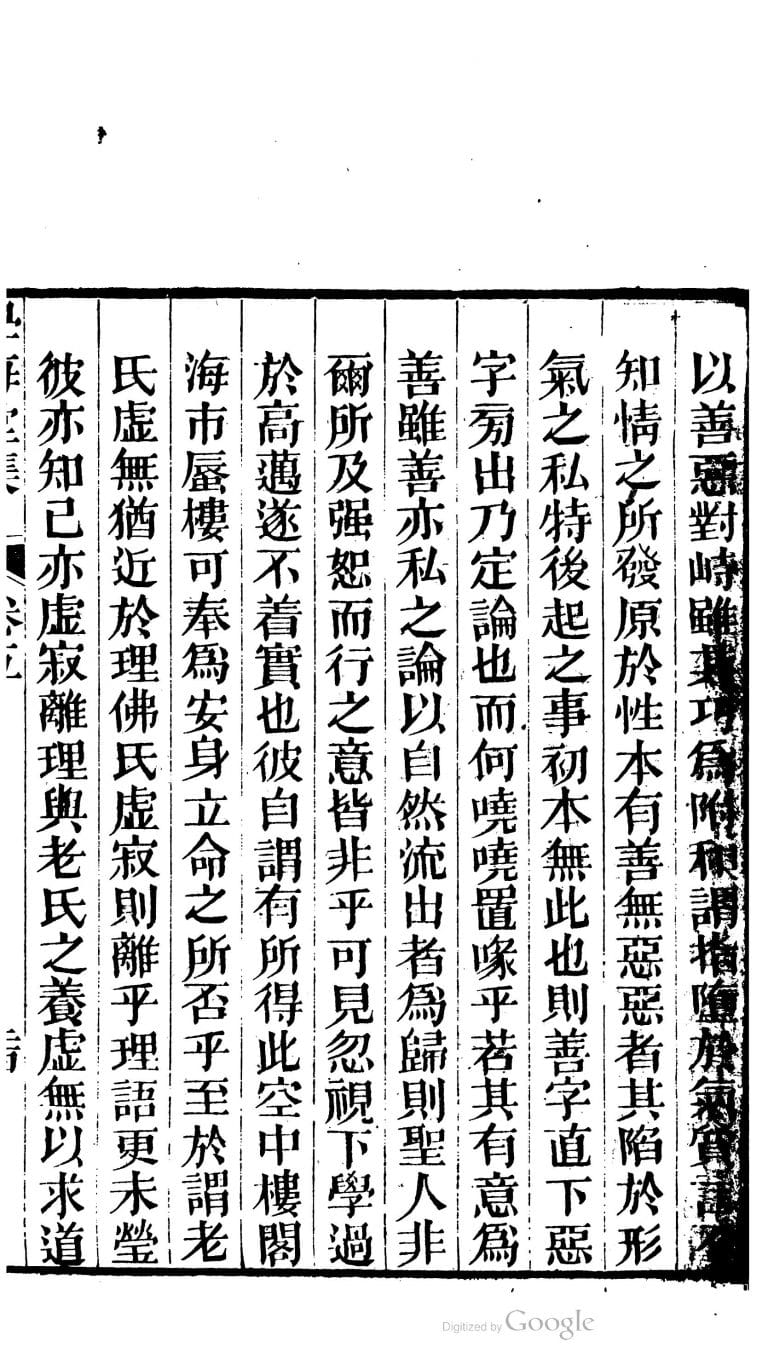 以善惡對峙雖其巧爲附和謂指墮於氣質
知情之所發原於性本有善無惡惡者其陷於形
氣之私特後起之事初本無此也則善字直下惡
字㫄出乃定論也而何嘵嘵置喙乎若其有意爲
善雖善亦私之論以自然流出者爲歸則聖人非
爾所及强恕而行之意皆非乎可見忽視下學過
於高邁遂不着實也彼自謂有所得此空中樓閣
海市蜃樓可奉爲安身立命之所否乎至於謂老
氏虛無猶近於理佛氏虛寂則離乎理語更未瑩
彼亦知已亦虛寂離理與老氏之養虛無以求道
卷五
Digitized by Google